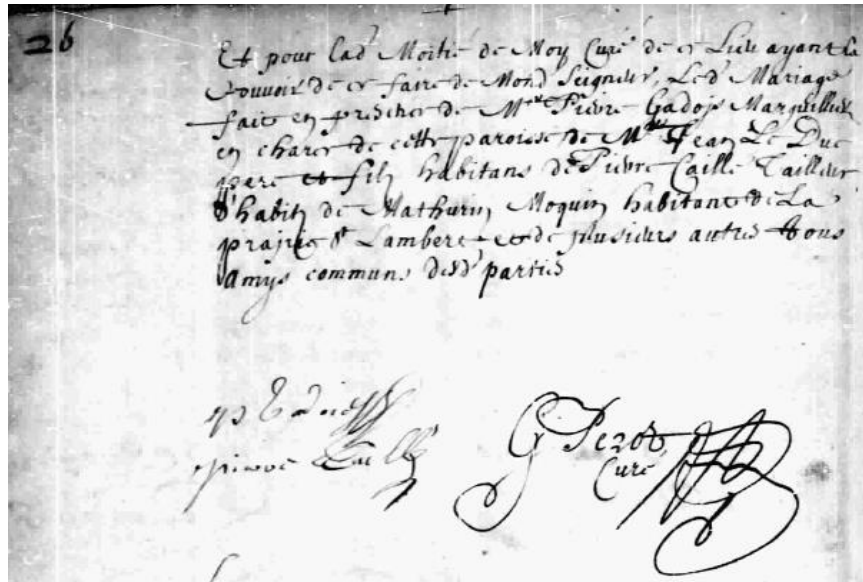 26
Et pour lad Moitié de Moy Curé de ce Lieu ayant le
pouvoir de ce faire de Mond Seigneur, Led Mariage
fait en presence de Mre Pierre Gadois Marguillier
en charge de cette paroisse de Mres Jean Le Duc
pere et fils habitans de Pierre Caille Tailleur
d'habits de Mathurin Moquin habitant de La
prairie St Lambert et de plusieurs autres tous
Amys communs desd parties
p gadois
pierre Caillé
G Perot
Curé